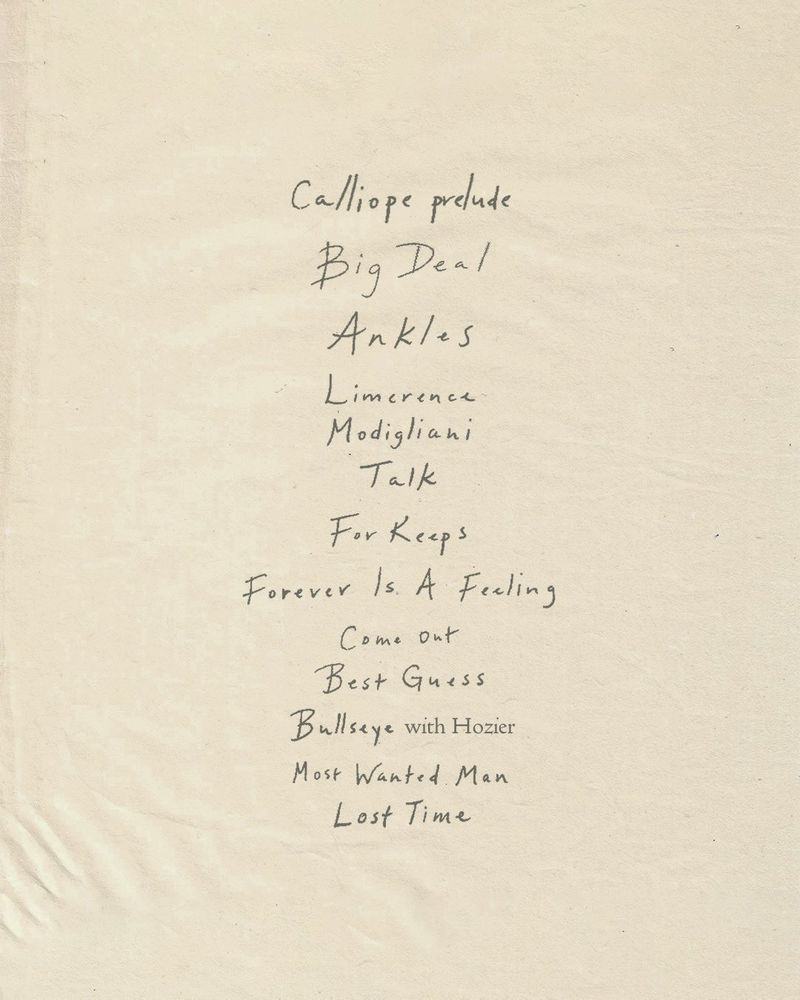 Calliope prelude
Big Deal
Ankles
Limerence
Modigliani
Talk
For Keeps
Forever Is A Feeling
Come out
Best Guess
Bullseye with Hozier
Most Wanted Man
Lost Time